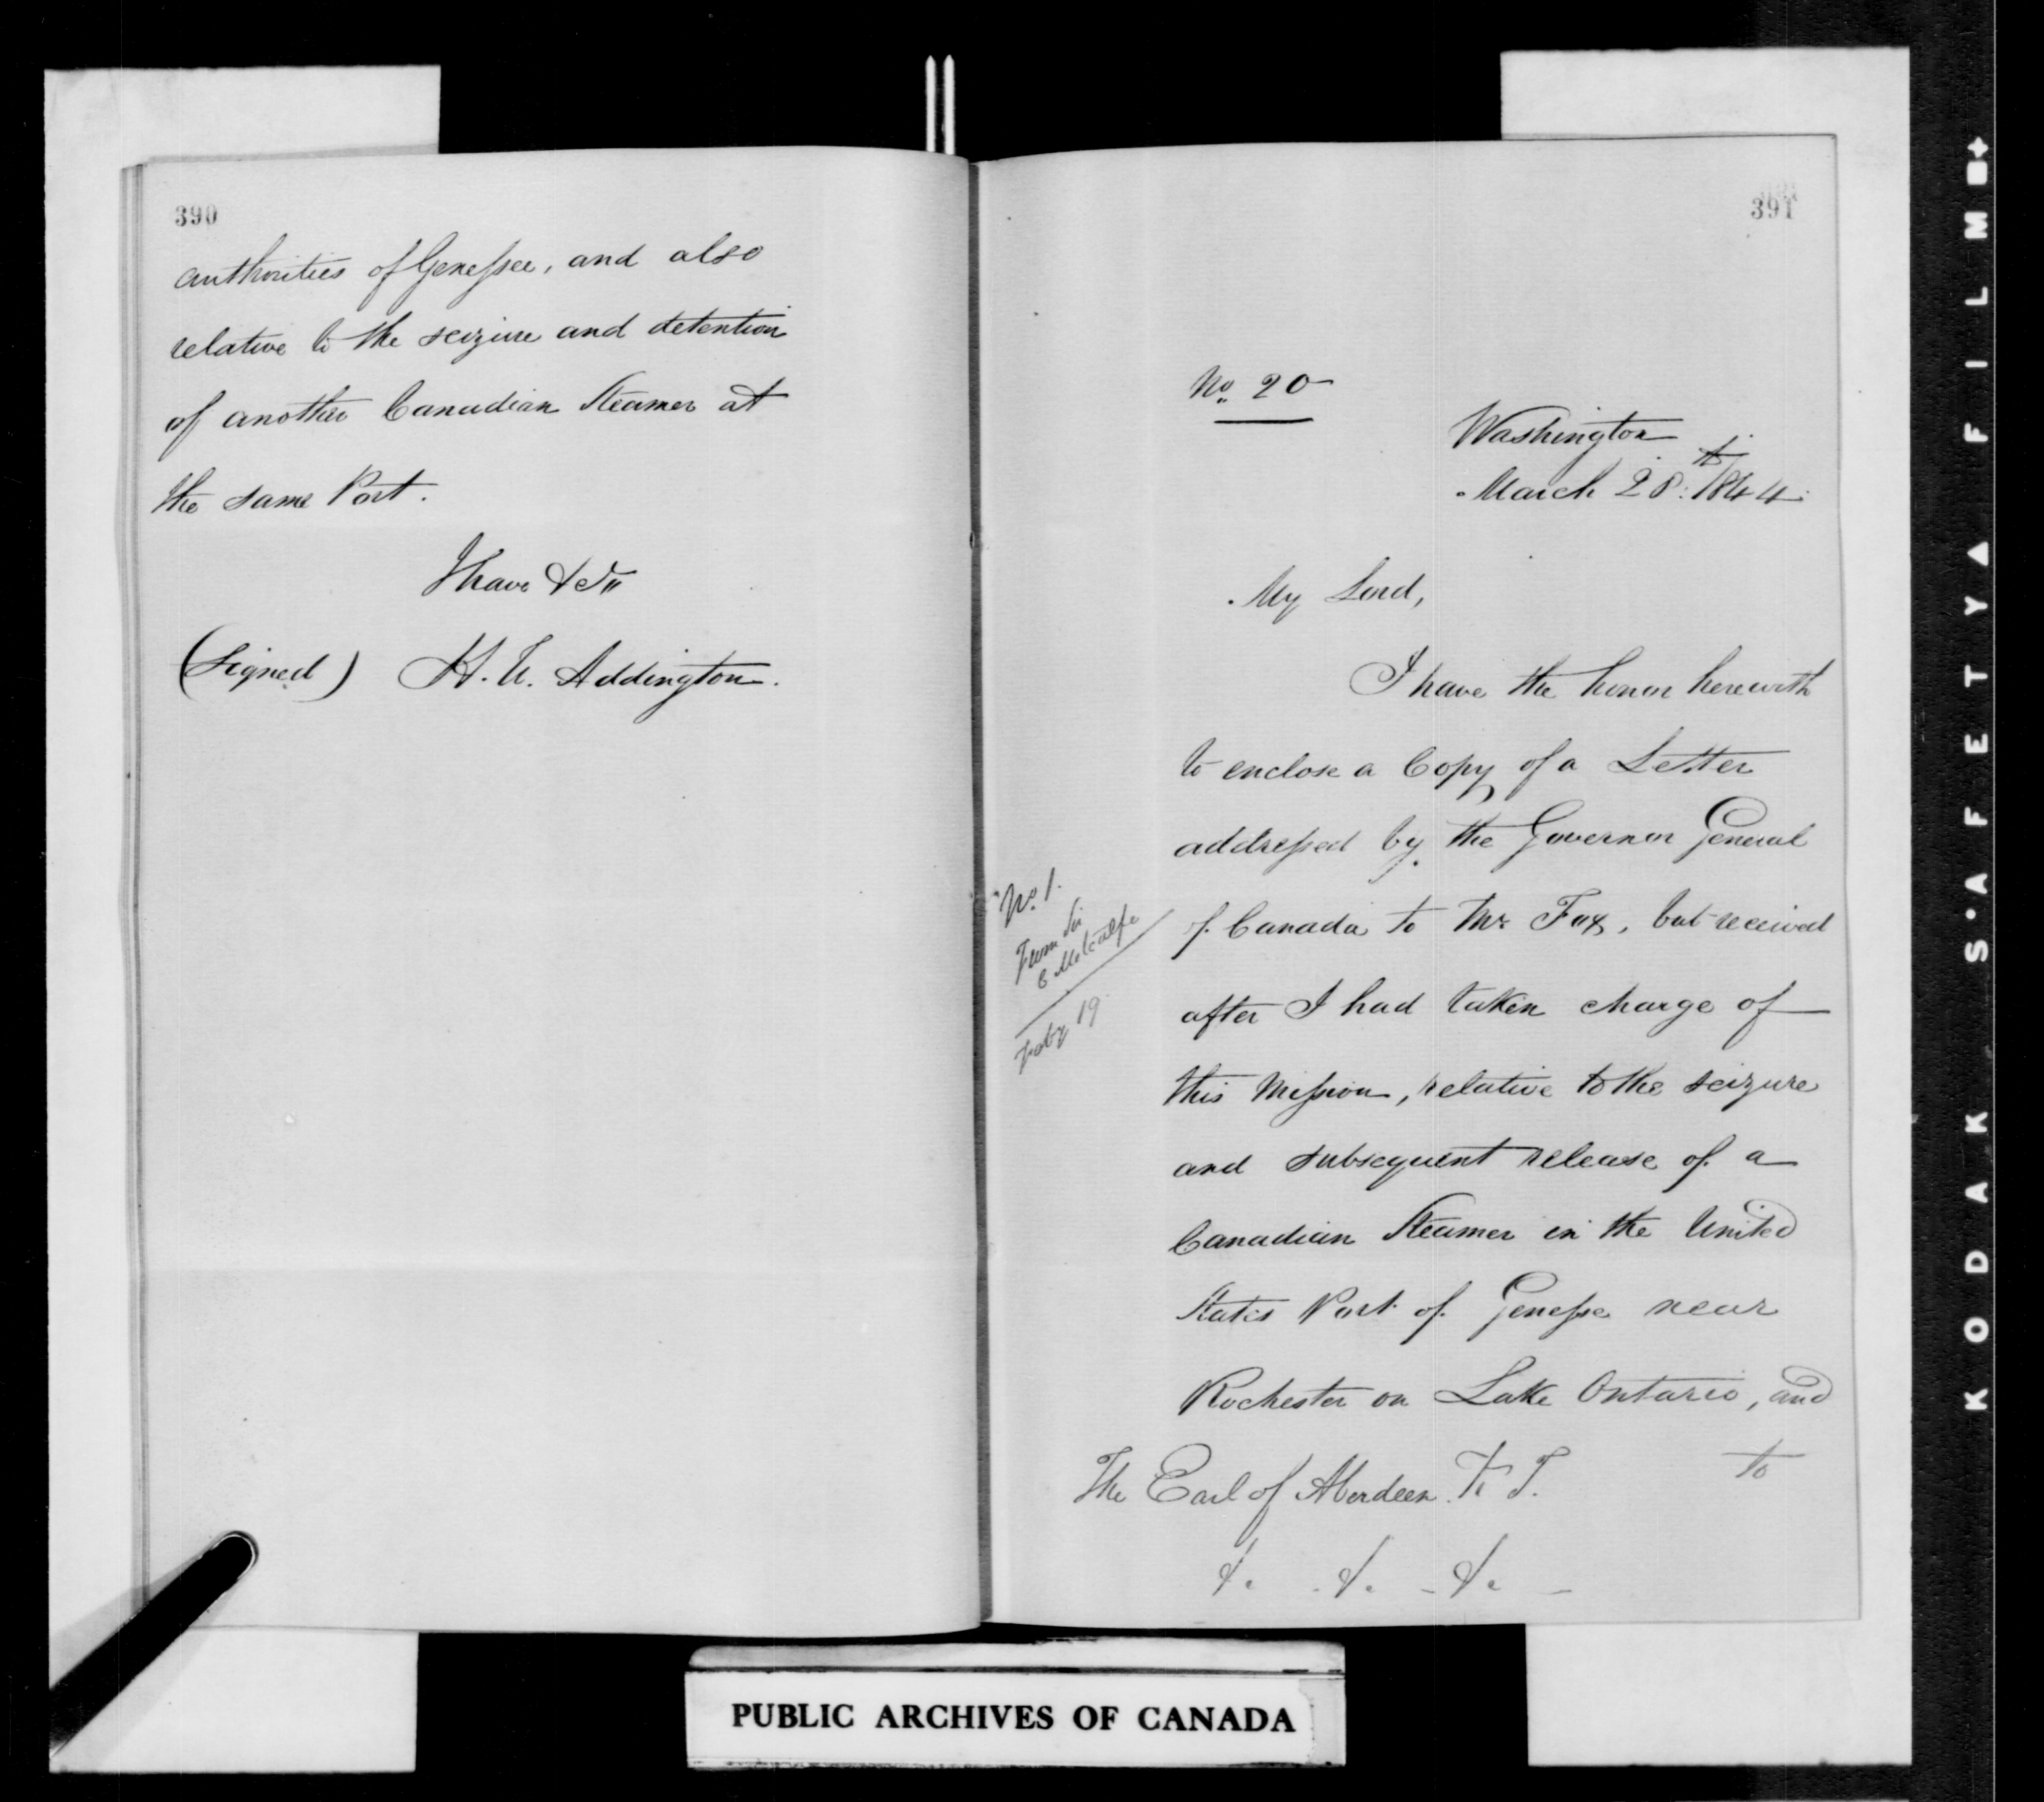 390
authorities of Genessee, and also
relative to the seizure and detention
of another Canadian Steamer at
the same Port.
I have &c
(Signed) H. U. Addington.
391
No. 20
Washington
March 28th 1844.
My Lord,
I have the honor herewith
to enclose a Copy of a Letter
addressed by the Governor General
of Canada to Mr Fox, but received
after I had taken charge of
this Mission, relative to the seizure
and subsequent release of a
Canadian Steamer in the United
States Port of Genesse near
Rochester on Lake Ontario, and
to
No. 1.
From Sir
C Metcalfe
Feby 19
The Earl of Aberdeen. K. T.
&c &c &c
PUBLIC ARCHIVES OF CANADA
KODAK S·AFETY FILM